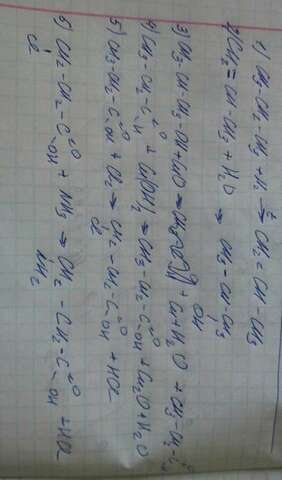 1) CH3-CH2-CH3 + H2 →t CH2 = CH - CH3
2) CH2 = CH - CH3 + H2O → CH3 - CH - CH3
OH
3) CH3-CH-CH3-OH + CuO → + Cu + H2O + CH3-CH2-C
4) CH3-CH2-C=O-H + Cu(OH)2 → CH3-CH2-C=O-OH + Cu2O + H2O
5) CH3-CH2-C=O-OH + Cl2 → CH2-CH2-C=O-OH + HCl
Cl
6) CH2-CH2-C=O-OH + NH3 → CH2-CH2-C=O-OH + HCl
Cl NH2